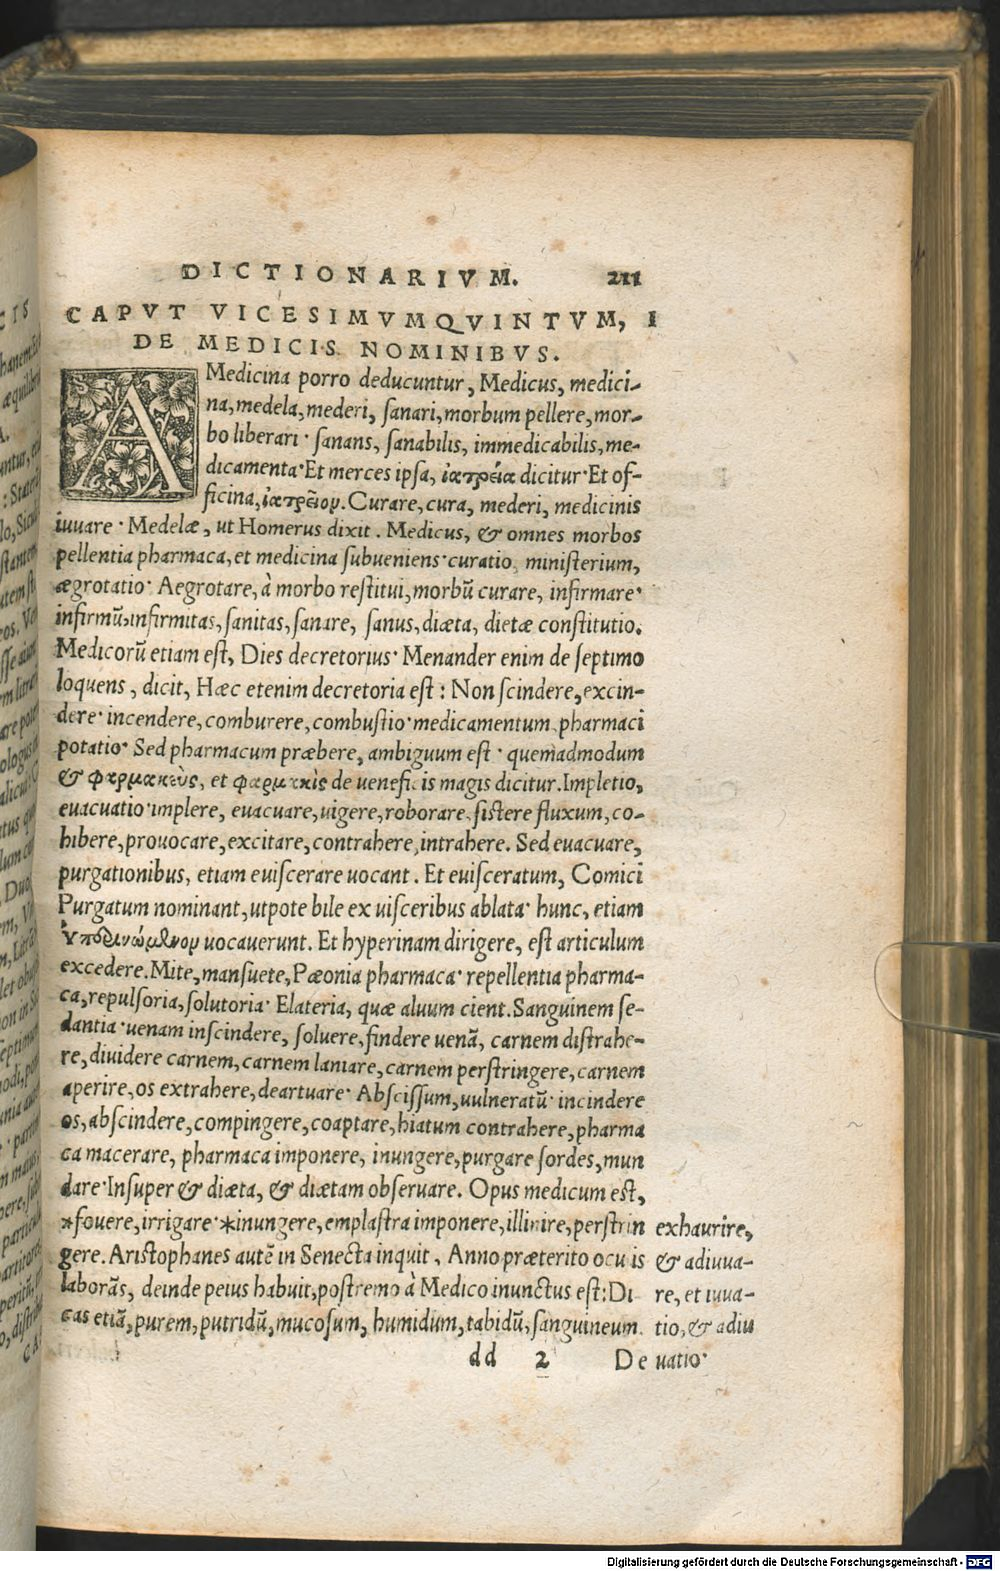 DICTIONARIVM. 211
CAPVT VICESIMVMQVINTVM, I
DE MEDICIS NOMINIBVS.
A Medicina porro deducuntur, Medicus, medici-
na, medela, mederi, ſanari, morbum pellere, mor-
bo liberari · ſanans, ſanabilis, immedicabilis, me-
dicamenta· Et merces ipſa, ἰατρεία dicitur· Et of-
ficina, ἰατρεῖον. Curare, cura, mederi, medicinis
iuuare · Medelæ, ut Homerus dixit. Medicus, & omnes morbos
pellentia pharmaca, et medicina ſubueniens· curatio, miniſterium,
ægrotatio· Aegrotare, à morbo reſtitui, morbū curare, infirmare·
infirmū, infirmitas, ſanitas, ſanare, ſanus, diæta, dietæ conſtitutio.
Medicorū etiam eſt, Dies decretorius· Menander enim de ſeptimo
loquens, dicit, Hæc etenim decretoria eſt: Non ſcindere, excin-
dere· incendere, comburere, combuſtio· medicamentum, pharmaci
potatio· Sed pharmacum præbere, ambiguum eſt · quemadmodum
& φαρμακεὺς, et φαρμακὶς de veneficis magis dicitur. Impletio,
euacuatio· implere, euacuare, uigere, roborare, ſiſtere fluxum, co-
hibere, prouocare, excitare, contrahere, intrahere. Sed euacuare,
purgationibus, etiam euiſcerare uocant. Et euiſceratum, Comici
Purgatum nominant, utpote bile ex uiſceribus ablata· hunc, etiam
ὑποδινώμενον uocauerunt. Et hyperinam dirigere, eſt articulum
excedere. Mite, manſuete, Pæonia pharmaca· repellentia pharma-
ca, repulſoria, ſolutoria· Elateria, quæ aluum cient. Sanguinem ſe-
dantia· uenam inſcindere, ſoluere, findere uenā, carnem diſtrahe-
re, diuidere carnem, carnem laniare, carnem perſtringere, carnem
aperire, os extrahere, deartuare· Abſciſſum, uulneratū· incindere
os, abſcindere, compingere, coaptare, hiatum contrahere, pharma
ca macerare, pharmaca imponere, inungere, purgare ſordes, mun
dare· Inſuper & diæta, & diætam obſeruare. Opus medicum eſt,
*fouere, irrigare· *inungere, emplaſtra imponere, illinire, perſtrin exhaurire,
gere. Ariſtophanes autē in Senecta inquit, Anno præterito ocu is & adiuua-
laborās, deinde peius habuit, poſtremo à Medico inunctus eſt: Di re, et iuua-
cas etiā, purem, putridū, mucoſum, humidum, tabidū, ſanguineum. tio, & adiu
dd 2 De uatio·
Digitalisierung gefördert durch die Deutsche Forschungsgemeinschaft - DFG